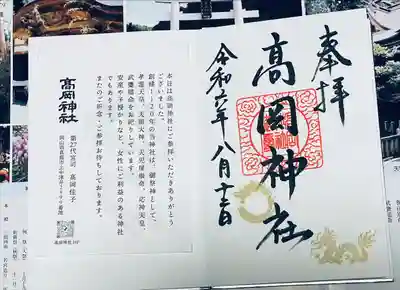 奉拝
髙岡神社
令和六年八月十三日
本日は髙岡神社にご参拝いただきありがとう
ございました。
当神社は、御祭神として、
孝霊天皇、天照大神、天児屋根命、応神天皇、
武甕槌命をお祀りしています。
安産や子授かりなど、女性にご利益のある神社
でもあります。
またのご祈念・ご参拝お待ちしております。
髙岡神社
第27代宮司 髙岡佳子
岡山県真庭市上中津井
髙岡神社HP